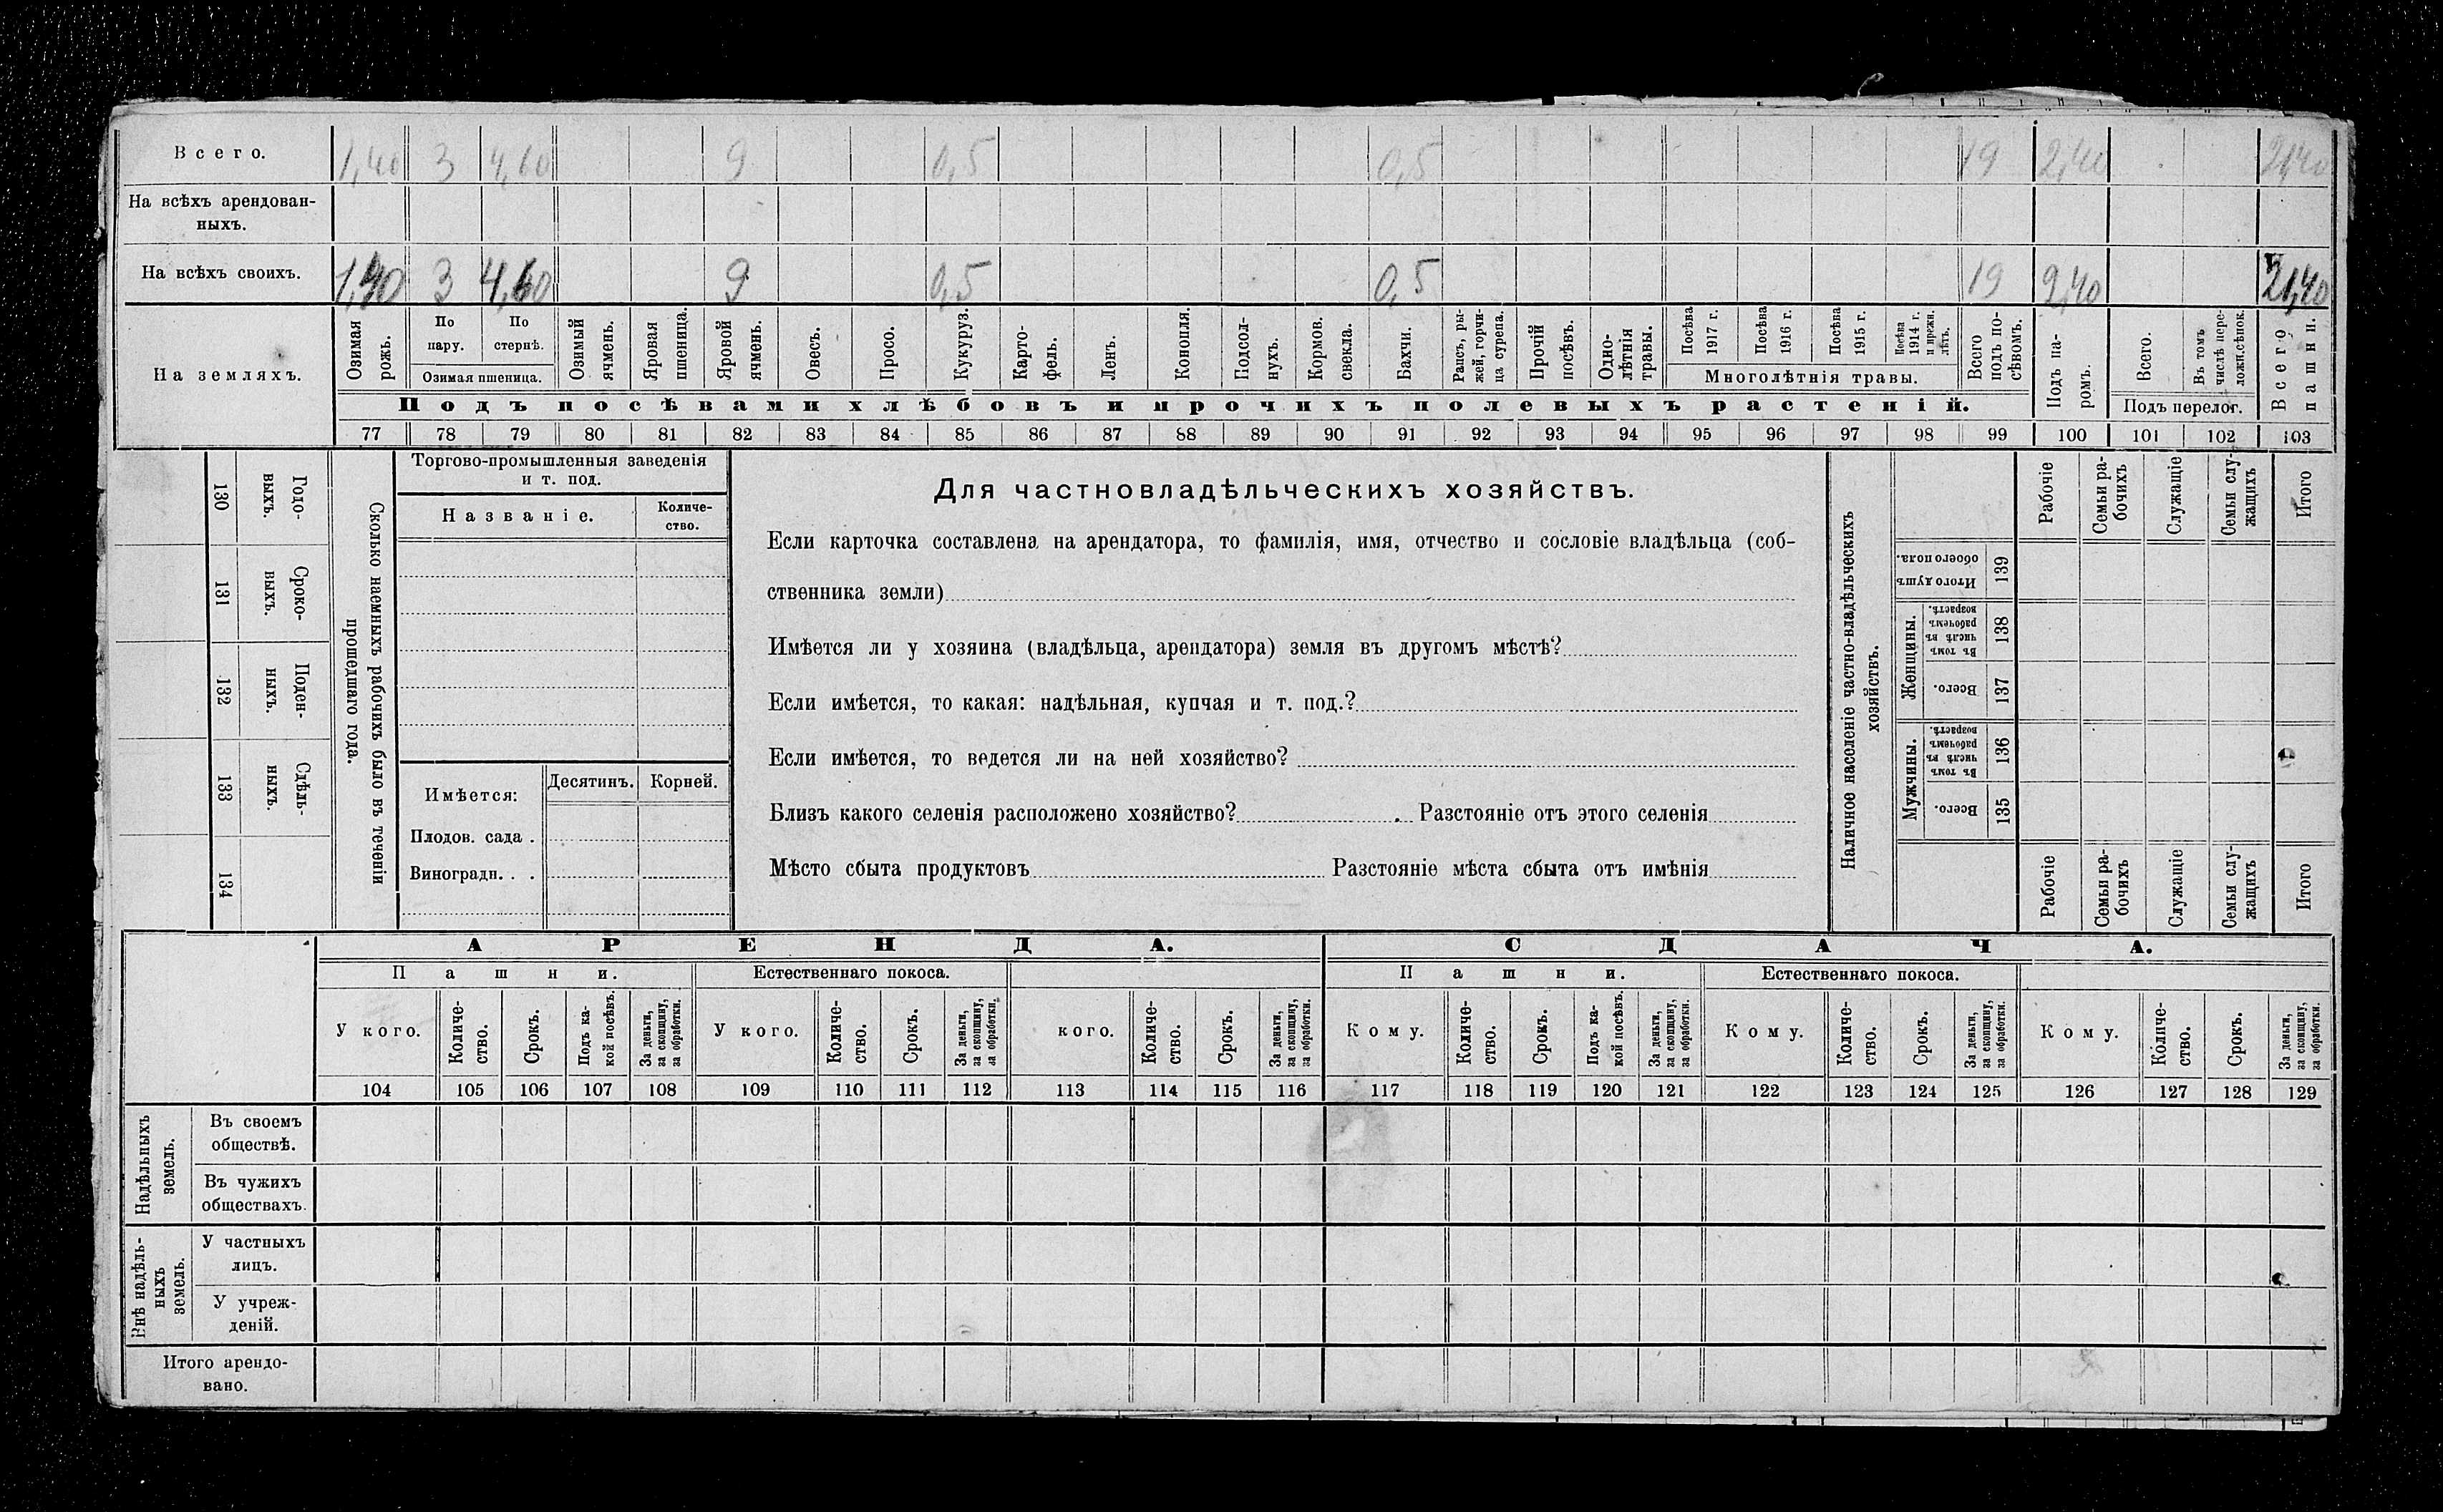 Всего. 1,40 3 4,60 9 0,5 0,5 19 2,40 21,40
На всѣхъ арендован-
ныхъ.
На всѣхъ своихъ. 1,40 3 4,60 9 0,5 0,5 19 2,40 21,40
На земляхъ.
Озимая
рожь.
По
пару.
По
стернѣ.
Озимая пшеница.
Озимый
ячмень.
Яровая
пшеница.
Яровой
ячмень.
Овесъ.
Просо.
Кукуруз.
Карто-
фель.
Ленъ.
Конопля.
Подсол-
нухъ.
Кормов.
свекла.
Бахчи.
Рапсъ, ры-
жей, горчи-
ца сурепа.
Прочій
посѣвъ.
Одно-
лѣтнія
травы.
Посѣва
1917 г.
Посѣва
1916 г.
Посѣва
1915 г.
Посѣва
1914 г.
и прежн.
лѣтъ.
Многолѣтнія травы.
Всего
подъ по-
сѣвомъ.
Подъ па-
ромъ.
Всего.
Въ томъ
числѣ пере-
ложн.сѣнок.
Подъ перелог.
Всего
пашни.
Подъ посѣвами хлѣбовъ и прочихъ полевыхъ растеній.
77 78 79 80 81 82 83 84 85 86 87 88 89 90 91 92 93 94 95 96 97 98 99 100 101 102 103
130
Годо-
выхъ.
131
Сроко-
выхъ.
132
Поден-
ныхъ.
133
Сдѣль-
ныхъ.
134
Сколько наемныхъ рабочихъ было въ теченіи
прошедшаго года.
Торгово-промышленныя заведенія
и т. под.
Названіе.
Количе-
ство.
Имѣется:
Десятинъ. Корней.
Плодов. сада .
Виноградн. . .
Для частновладѣльческихъ хозяйствъ.
Если карточка составлена на арендатора, то фамилія, имя, отчество и сословіе владѣльца (соб-
ственника земли)
Имѣется ли у хозяина (владѣльца, арендатора) земля въ другомъ мѣстѣ?
Если имѣется, то какая: надѣльная, купчая и т. под.?
Если имѣется, то ведется ли на ней хозяйство?
Близъ какого селенія расположено хозяйство? Разстояніе отъ этого селенія
Мѣсто сбыта продуктовъ Разстояніе мѣста сбыта отъ имѣнія
Наличное населеніе частно-владѣльческихъ
хозяйствъ.
Рабочіе
Семьи ра-
бочихъ
Служащіе
Семьи слу-
жащихъ
Итого
Итого душъ
обоего пола.
139
Женщины.
Въ томъ
числѣ въ
рабочемъ
возрастѣ.
138
Всего.
137
Мужчины.
Въ томъ
числѣ въ
рабочемъ
возрастѣ.
136
Всего.
135
Рабочіе
Семьи ра-
бочихъ
Служащіе
Семьи слу-
жащихъ
Итого
АРЕНДА. СДАЧА.
Пашни. Естественнаго покоса. Пашни. Естественнаго покоса.
У кого.
Количе-
ство.
Срокъ.
Подъ ка-
кой посѣвъ.
За деньги,
за скопщину,
за обработки.
У кого.
Количе-
ство.
Срокъ.
За деньги,
за скопщину,
за обработки.
кого.
Количе-
ство.
Срокъ.
За деньги,
за скопщину,
за обработки.
Кому.
Количе-
ство.
Срокъ.
Подъ ка-
кой посѣвъ.
За деньги,
за скопщину,
за обработки.
Кому.
Количе-
ство.
Срокъ.
За деньги,
за скопщину,
за обработки.
Кому.
Количе-
ство.
Срокъ.
За деньги,
за скопщину,
за обработки.
104 105 106 107 108 109 110 111 112 113 114 115 116 117 118 119 120 121 122 123 124 125 126 127 128 129
Надѣльныхъ
земель.
Въ своемъ
обществѣ.
Въ чужихъ
обществахъ.
Внѣ надѣль-
ныхъ
земель.
У частныхъ
лицъ.
У учреж-
деній.
Итого арендо-
вано.